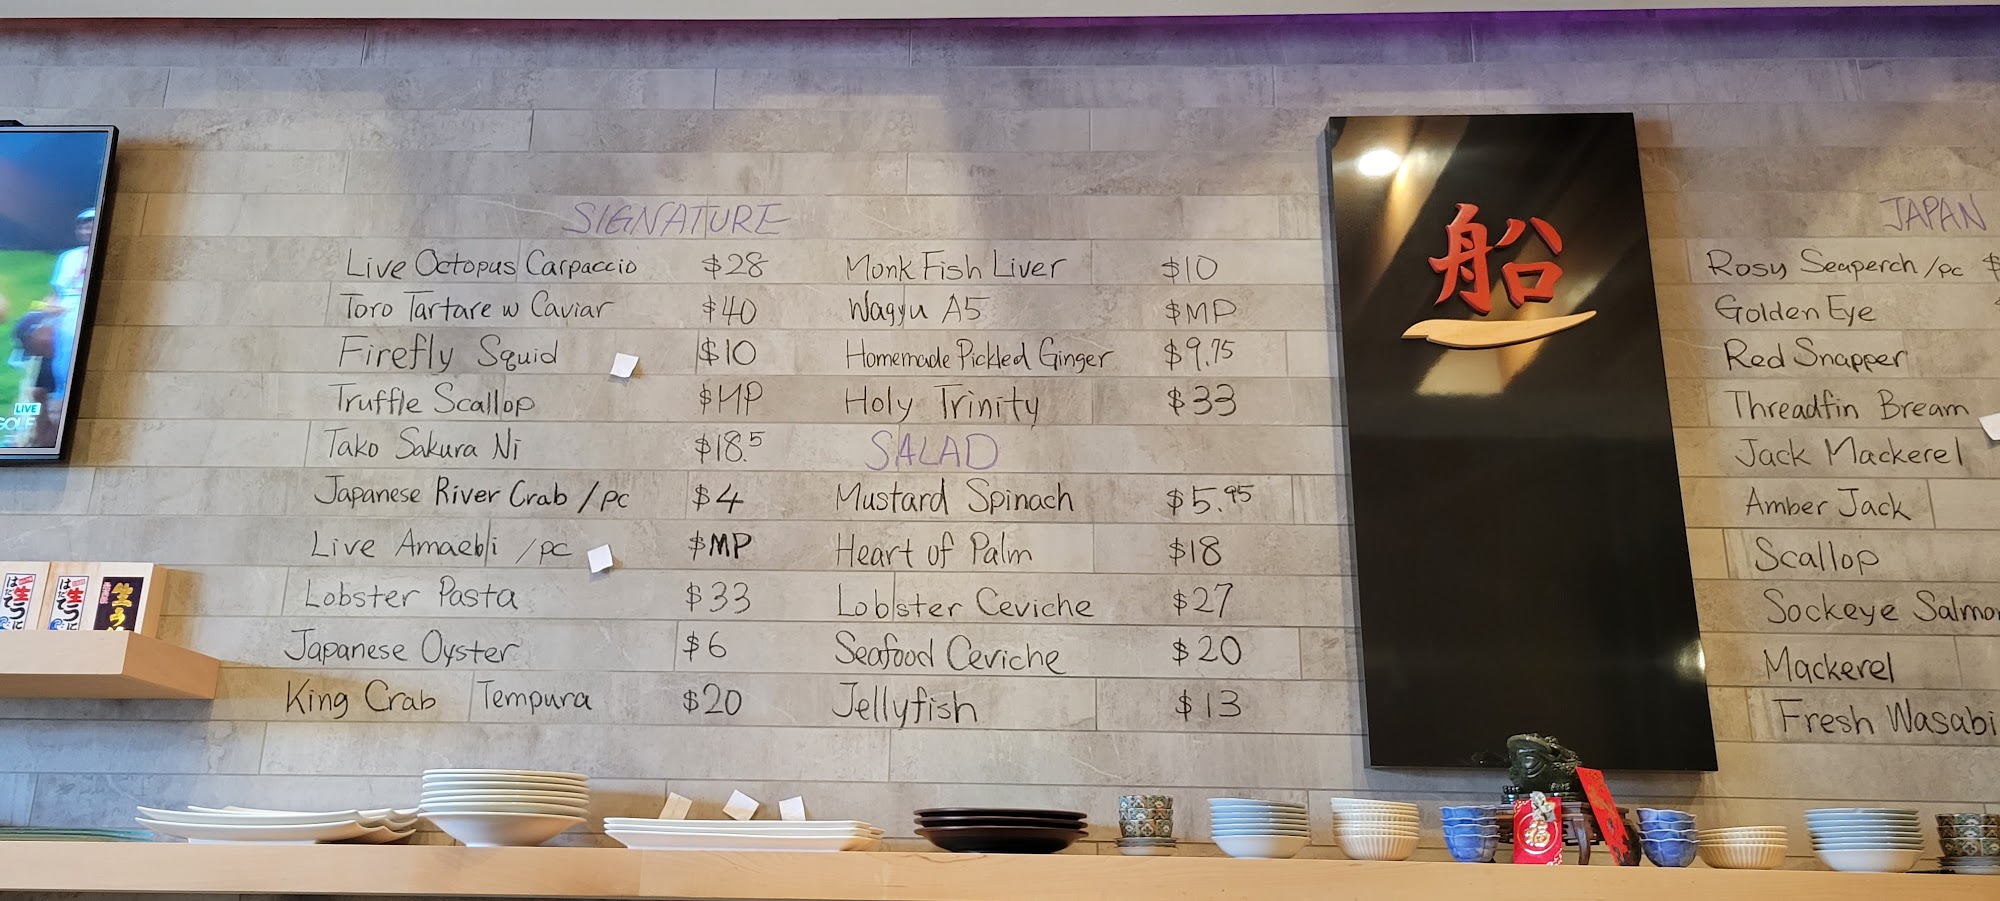 SIGNATURE
Live Octopus Carpaccio $28
Toro Tartare w Caviar $40
Firefly Squid $10
Truffle Scallop $MP
Tako Sakura Ni $18.5
Japanese River Crab /pc $4
Live Amaebi /pc $MP
Lobster Pasta $33
Japanese Oyster $6
King Crab Tempura $20
Monk Fish Liver $10
Wagyu A5 $MP
Homemade Pickled Ginger $9.75
Holy Trinity $33
SALAD
Mustard Spinach $5.95
Heart of Palm $18
Lobster Ceviche $27
Seafood Ceviche $20
Jellyfish $13
船
JAPAN
Rosy Seaperch /pc $
Golden Eye
Red Snapper
Threadfin Bream
Jack Mackerel
Amber Jack
Scallop
Sockeye Salmon
Mackerel
Fresh Wasabi
LIVE
GOLF
生うに
生うに
生う
福